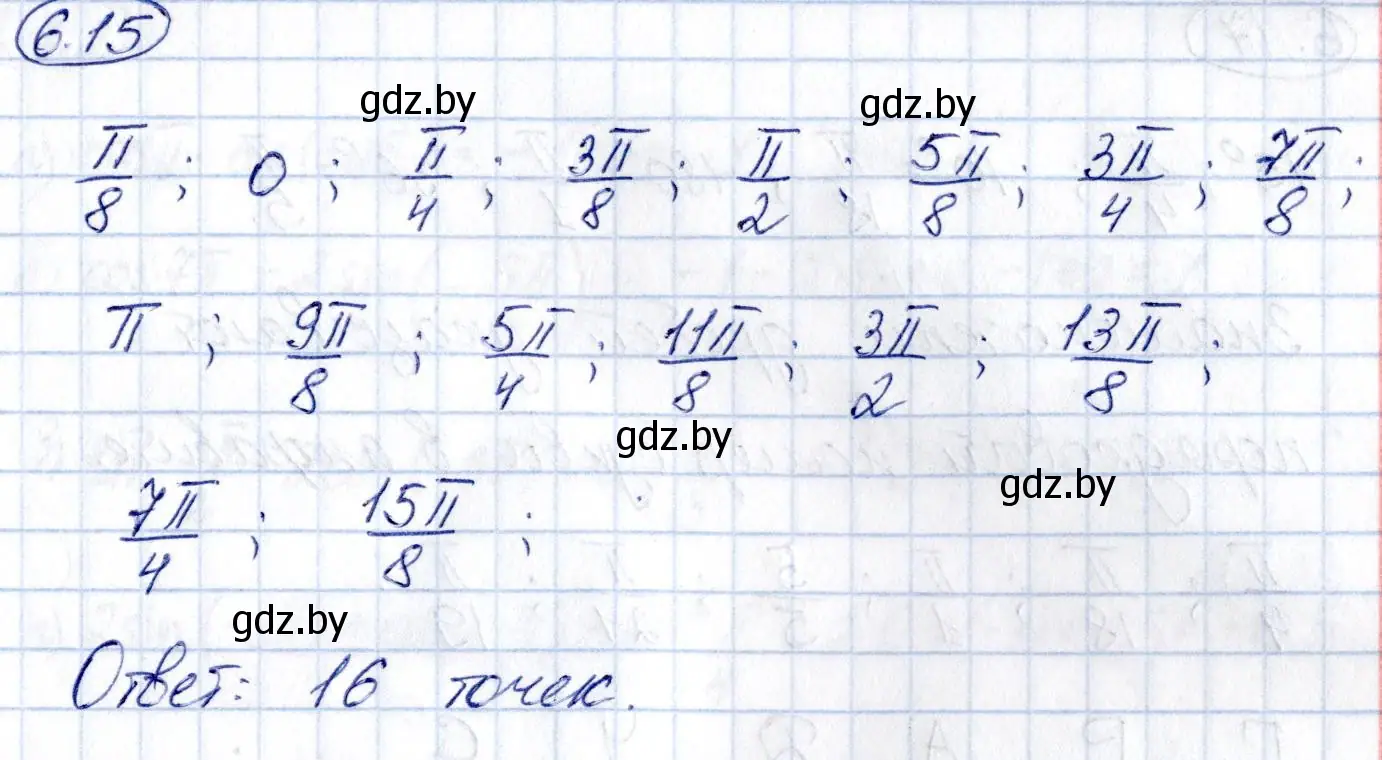 6.15
gdz.by gdz.by
π/8 ; 0 ; π/4 ; 3π/8 ; π/2 ; 5π/8 ; 3π/4 ; 7π/8 ;
π ; 9π/8 ; 5π/4 ; 11π/8 ; 3π/2 ; 13π/8 ;
gdz.by
gdz.by
7π/4 ; 15π/8 ;
gdz.by
Ответ: 16 точек.